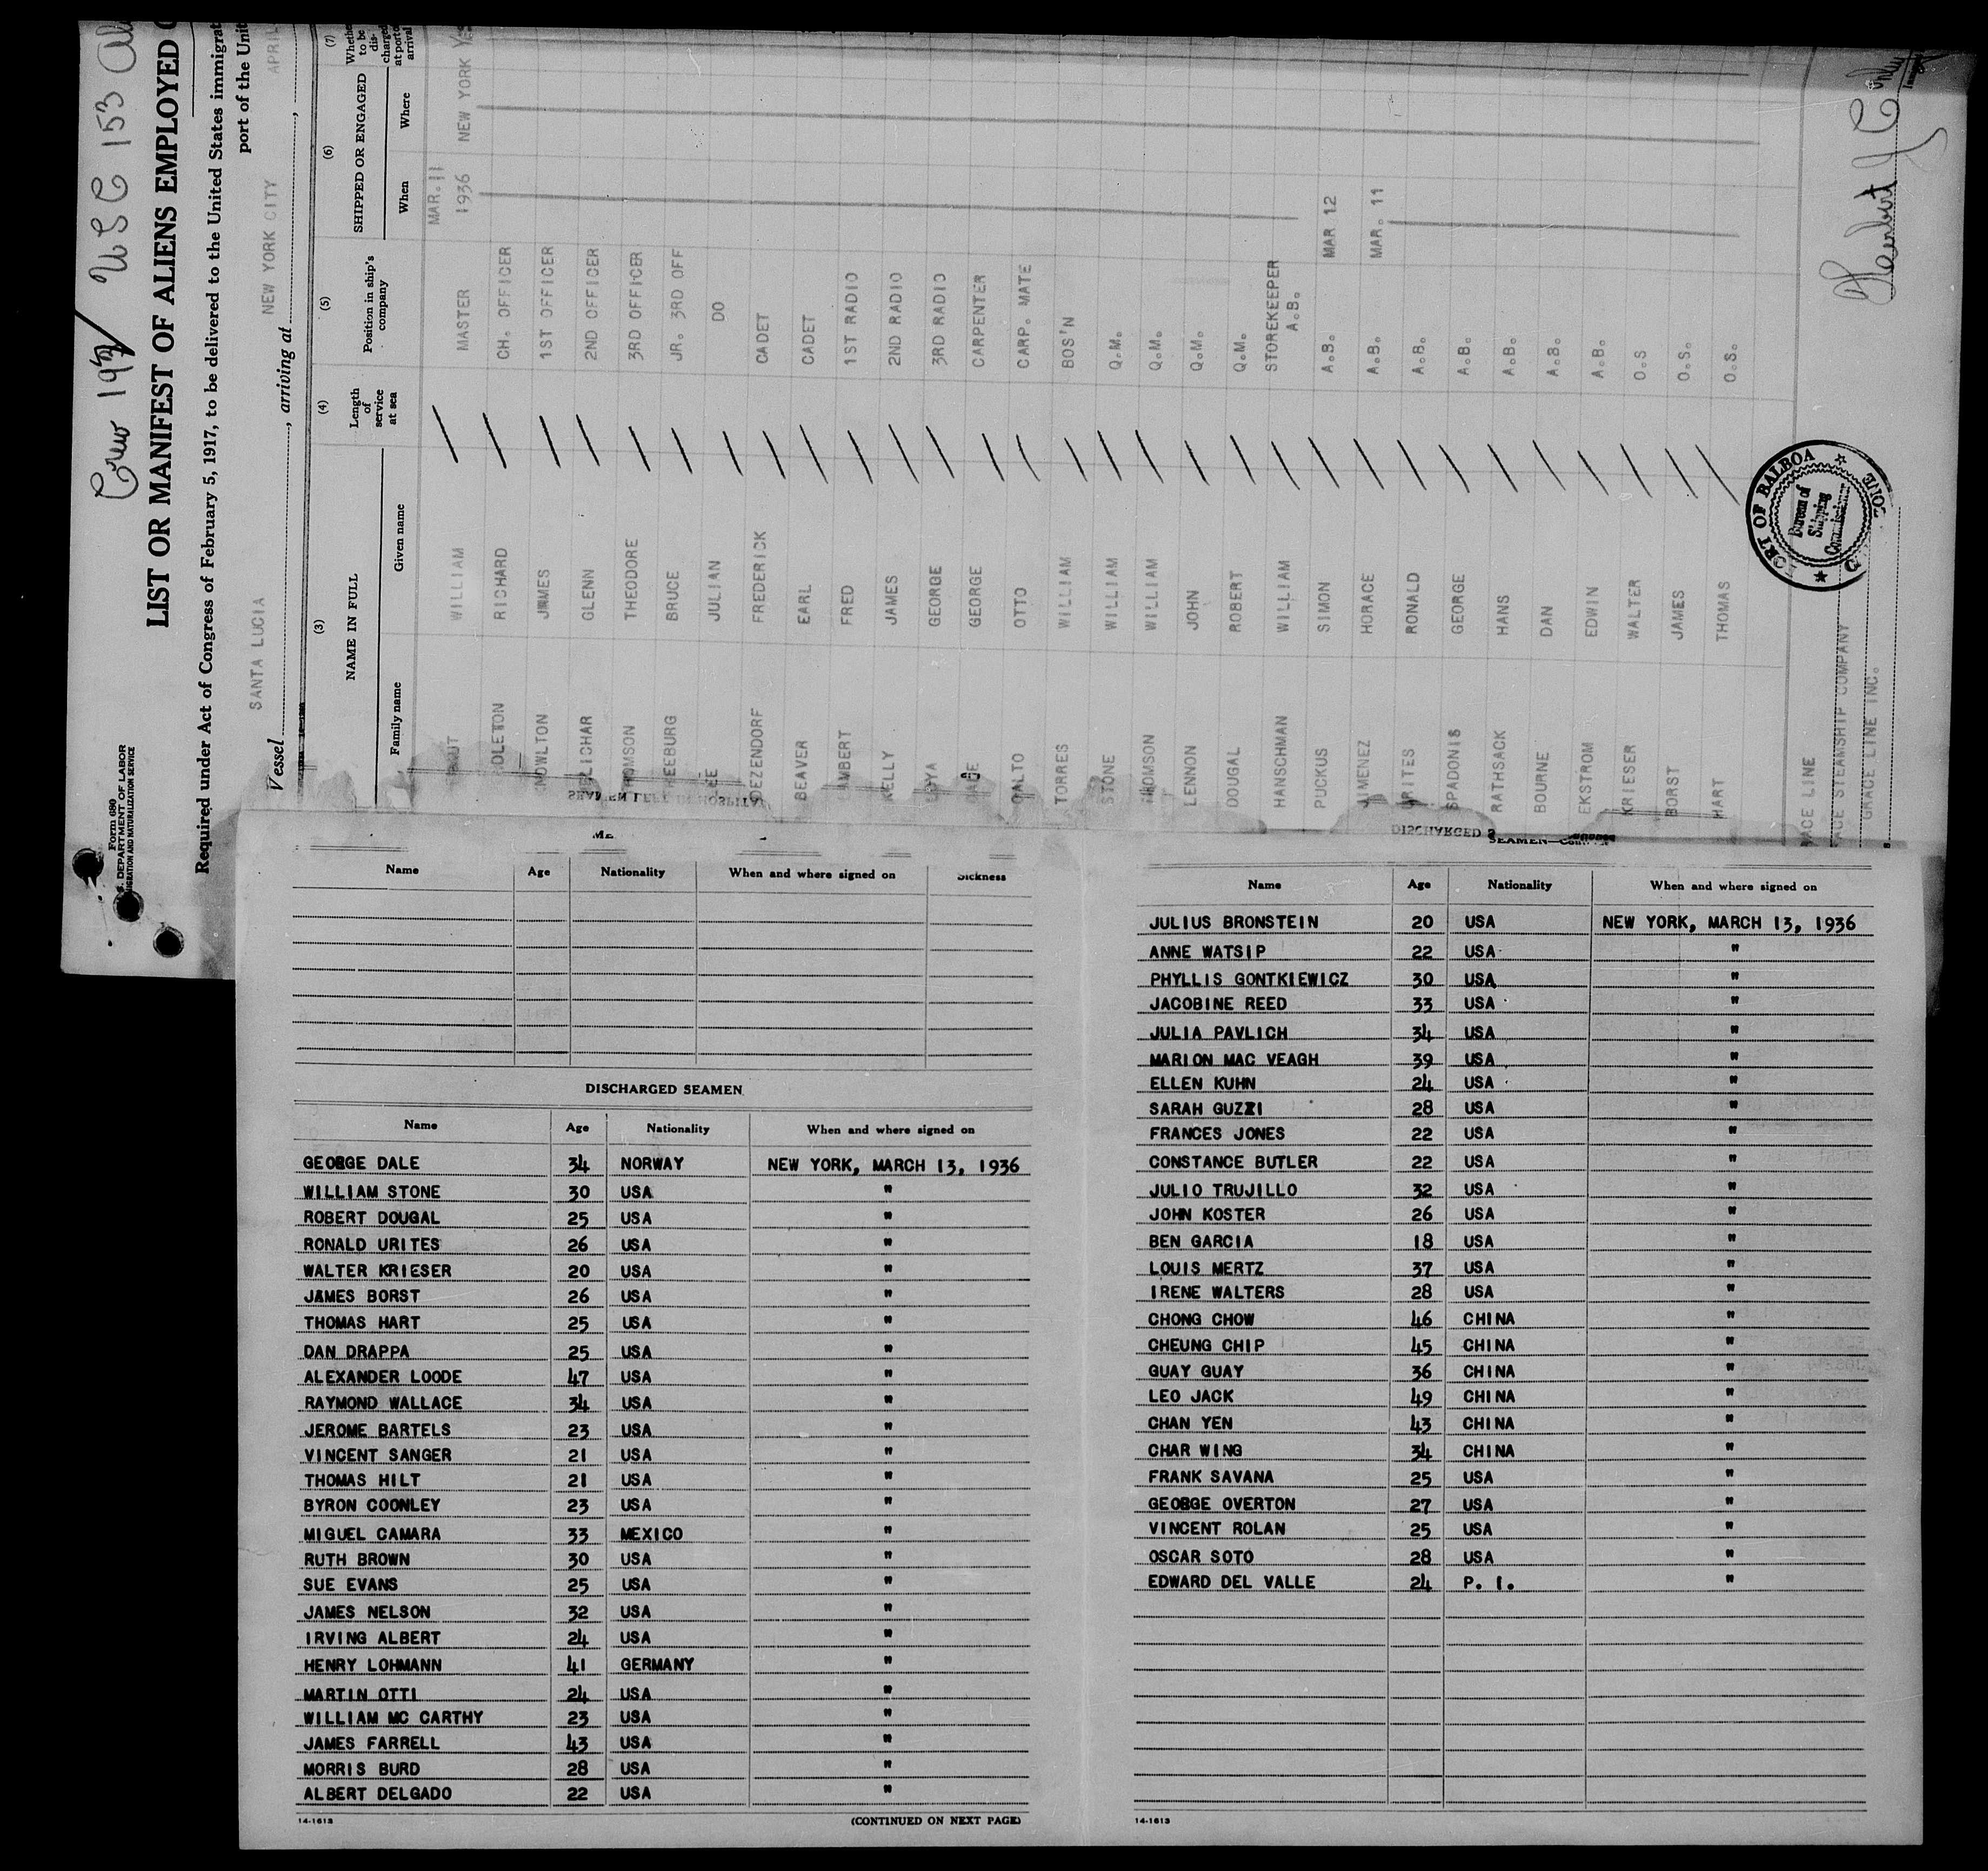 Crew 193 / USC 153
Form 680
DEPARTMENT OF LABOR
IMMIGRATION AND NATURALIZATION SERVICE
LIST OR MANIFEST OF ALIENS EMPLOYED
Required under Act of Congress of February 5, 1917, to be delivered to the United States immigrat
port of the Unit
Vessel SANTA LUCIA, arriving at NEW YORK CITY, APRIL
(3) (4) (5) (6) (7)
NAME IN FULL Length of service at sea Position in ship's company SHIPPED OR ENGAGED Whether to be discharged at port of arrival
Family name Given name When Where
WILLIAM MASTER MAR. 11 1936 NEW YORK YES
RICHARD CH. OFFICER
JAMES 1ST OFFICER
GLENN 2ND OFFICER
THEODORE 3RD OFFICER
BRUCE JR. 3RD OFF
JULIAN DO
DEZENDORF FREDERICK CADET
BEAVER EARL CADET
FRED 1ST RADIO
KELLY JAMES 2ND RADIO
GEORGE 3RD RADIO
GEORGE CARPENTER
OTTO CARP. MATE
TORRES WILLIAM BOS'N
STONE WILLIAM Q.M.
THOMSON WILLIAM Q.M.
LENNON JOHN Q.M.
DOUGAL ROBERT Q.M.
HANSCHMAN WILLIAM STOREKEEPER A.B.
PUCKUS SIMON A.B. MAR 12
JIMENEZ HORACE A.B. MAR. 11
URITES RONALD A.B.
SPADONIS GEORGE A.B.
RATHSACK HANS A.B.
BOURNE DAN A.B.
EKSTROM EDWIN A.B.
KRIESER WALTER O.S
BORST JAMES O.S.
HART THOMAS O.S.
ACE LINE
ACE STEAMSHIP COMPANY
GRACE LINE INC.
PORT OF BALBOA
Bureau of
Shipping
Commissioner
ZONE
Herbert
SEAMEN LEFT IN HOSPITAL
Name Age Nationality When and where signed on Sickness
DISCHARGED SEAMEN
Name Age Nationality When and where signed on
GEORGE DALE 34 NORWAY NEW YORK, MARCH 13, 1936
WILLIAM STONE 30 USA "
ROBERT DOUGAL 25 USA "
RONALD URITES 26 USA "
WALTER KRIESER 20 USA "
JAMES BORST 26 USA "
THOMAS HART 25 USA "
DAN DRAPPA 25 USA "
ALEXANDER LOODE 47 USA "
RAYMOND WALLACE 34 USA "
JEROME BARTELS 23 USA "
VINCENT SANGER 21 USA "
THOMAS HILT 21 USA "
BYRON COONLEY 23 USA "
MIGUEL CAMARA 33 MEXICO "
RUTH BROWN 30 USA "
SUE EVANS 25 USA "
JAMES NELSON 32 USA "
IRVING ALBERT 24 USA "
HENRY LOHMANN 41 GERMANY "
MARTIN OTTI 24 USA "
WILLIAM MC CARTHY 23 USA "
JAMES FARRELL 43 USA "
MORRIS BURD 28 USA "
ALBERT DELGADO 22 USA "
14-1613 (CONTINUED ON NEXT PAGE)
DISCHARGED S
SEAMEN—Con
Name Age Nationality When and where signed on
JULIUS BRONSTEIN 20 USA NEW YORK, MARCH 13, 1936
ANNE WATSIP 22 USA "
PHYLLIS GONTKIEWICZ 30 USA "
JACOBINE REED 33 USA "
JULIA PAVLICH 34 USA "
MARION MAC VEAGH 39 USA "
ELLEN KUHN 24 USA "
SARAH GUZZI 28 USA "
FRANCES JONES 22 USA "
CONSTANCE BUTLER 22 USA "
JULIO TRUJILLO 32 USA "
JOHN KOSTER 26 USA "
BEN GARCIA 18 USA "
LOUIS MERTZ 37 USA "
IRENE WALTERS 28 USA "
CHONG CHOW 46 CHINA "
CHEUNG CHIP 45 CHINA "
GUAY GUAY 36 CHINA "
LEO JACK 49 CHINA "
CHAN YEN 43 CHINA "
CHAR WING 34 CHINA "
FRANK SAVANA 25 USA "
GEORGE OVERTON 27 USA "
VINCENT ROLAN 25 USA "
OSCAR SOTO 28 USA "
EDWARD DEL VALLE 24 P. I. "
14-1613